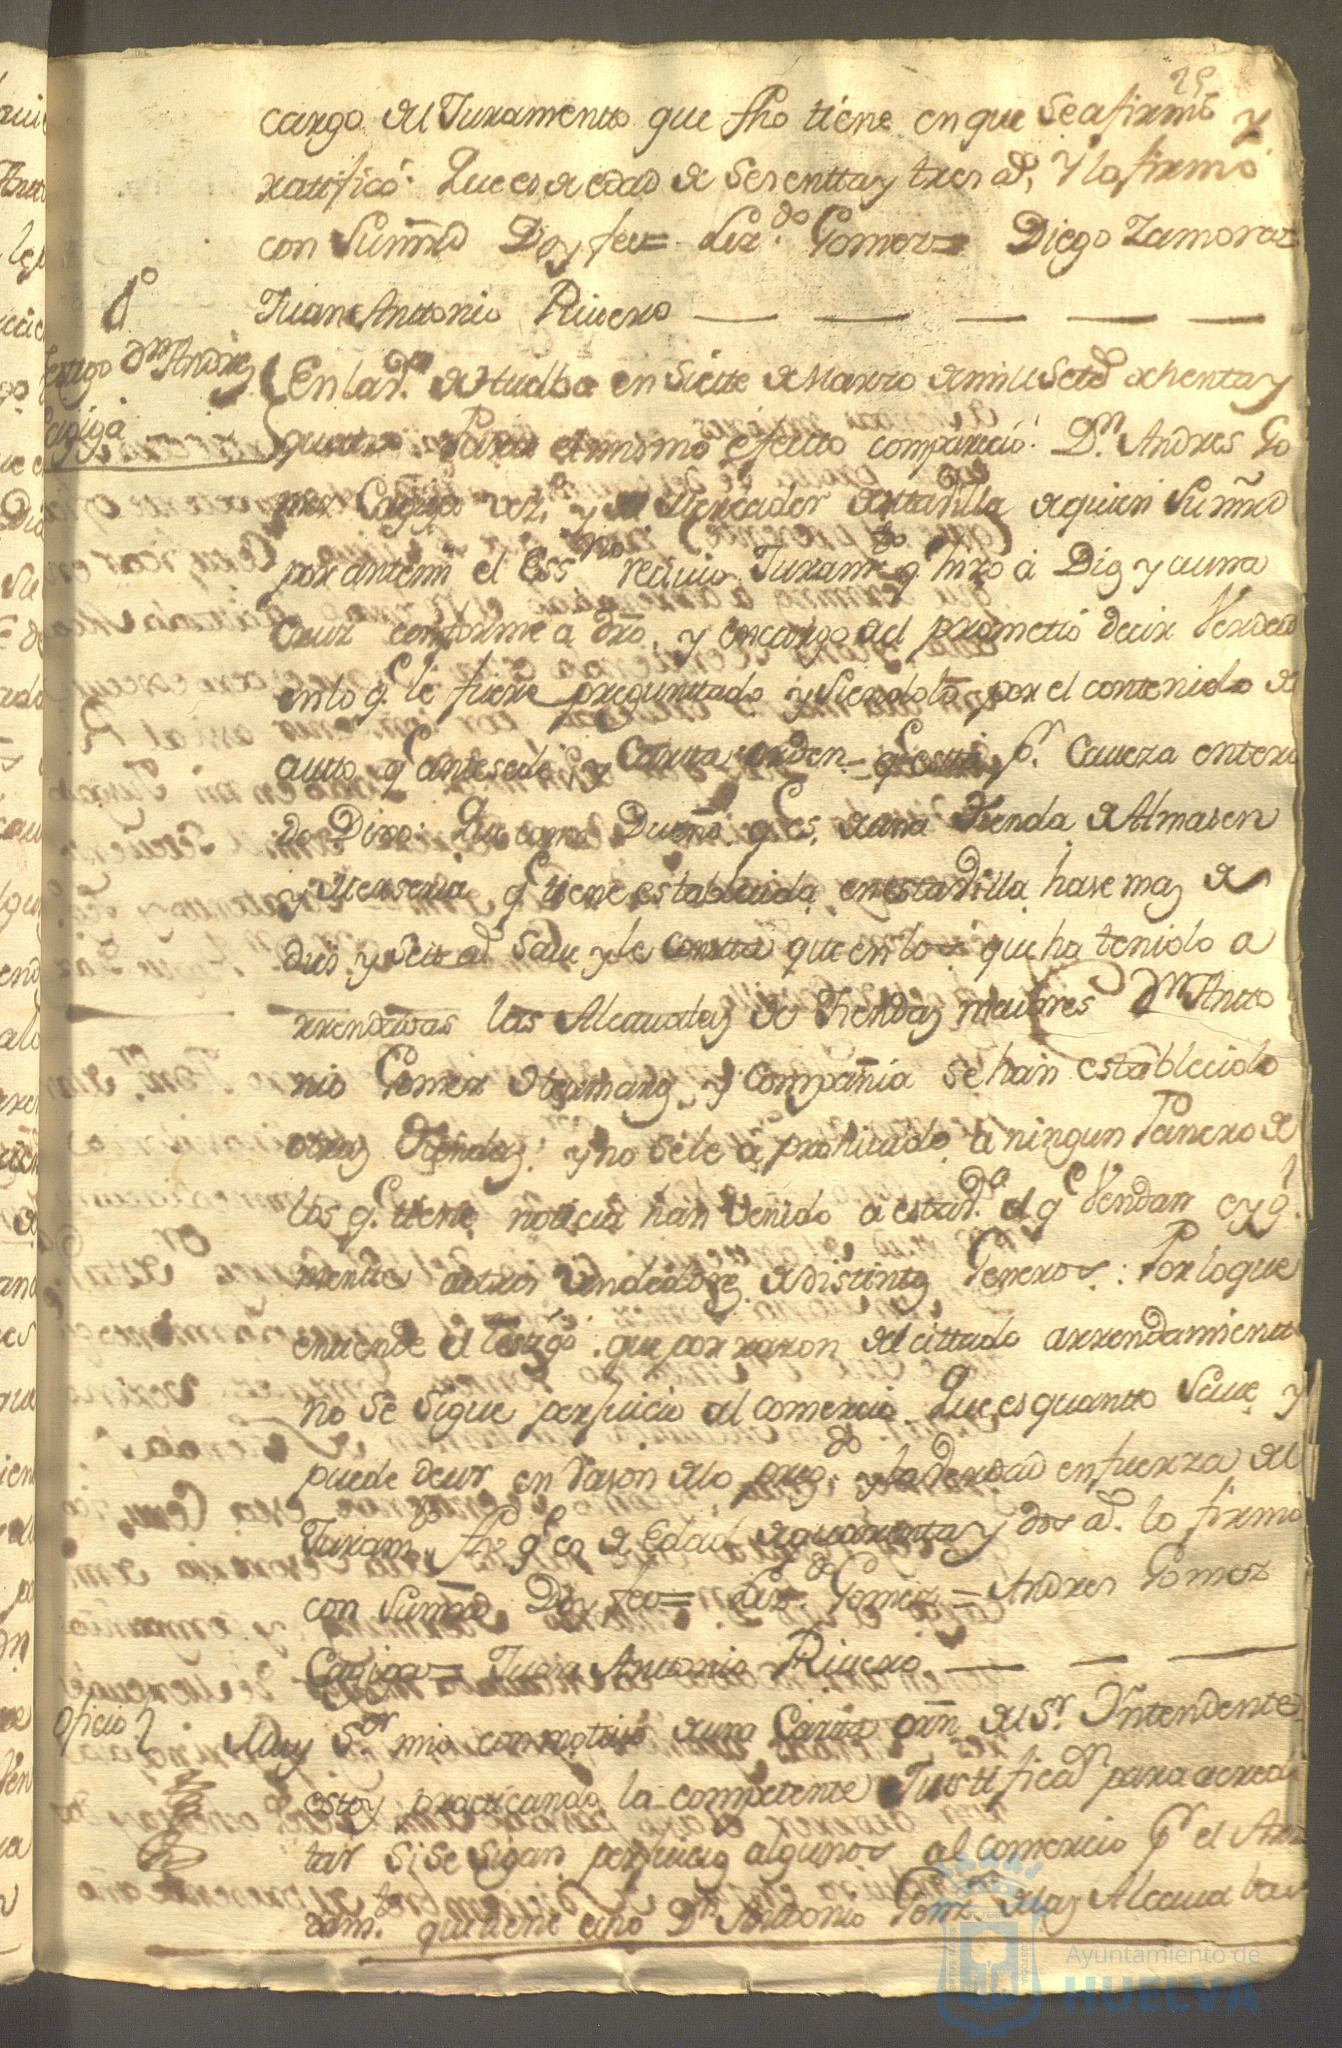 25
cargo del Juramentto que fho tiene en que se afirmó y
ratificó. Que es de edad de sesentta y tres ad. Y lo firmó
con Sumrd Doy fee= Liz.do Gomez= Diego Zamora=
Juan Anttonio Rivero
do
testigo Dn Andres
Cagiga
En la V.a de Huelba en Siette de Marzo de mill Setd ochenta y
quatro Para el mismo efectto compareció Dn. Andres Go
mez Cagiga vez.o y Mercader de esta Villa de quien Sumrd
por antemi el Essno recivio Juramto q. hizo a Dios y a una
Cruz conforme a dro, y en cargo del promettió decir Verdad
en lo q. le fuere preguntado y siendolo por el contenido de
autto q. antesede y Cartta orden q. esttá p.r Caveza entera
do Dixo: Que como Dueño q. es de una Tienda de Almasen
y Merseria q. tiene establecida en esta Villa hase mas de
dies y seis ad save y le constta que en los que ha tenido a
rrendadas las Alcavalas de Tiendas maiores Dn Antto
nio Gomez Hermano y Compañia se han establecido
otras Tiendas: y no se le á prohivido a ningun Panero de
los q. tiene noticia han venido a esta V.a el q. Vendan e yg.l
mentte a otros vendedores de distintos Generos: Por lo que
entiende el testigo: que por razon del cittado arrendamientto
no se sigue perjuicio al comercio. Que es quantto save y
puede decir en rason de lo preg.do y la verdad en fuerza del
Juram.to fho q. es de Edad de quarenta y dos ad. lo firmó
con Sumrd Doy fee= Liz.do Gomez= Andres Gomez
Cagiga= Juan Antonio Rivero
Oficio
Muy S.or mio con motivo de una Cartta orn del Sr. Yntendente
estoy practicando la competente Justificaon para acredi
tar si se sigan perjuicios algunos al comercio pr el Arren
dam.to que tiene echo Dn Antonio Gomz de las Alcavalas
Ayuntamiento de
HUELVA